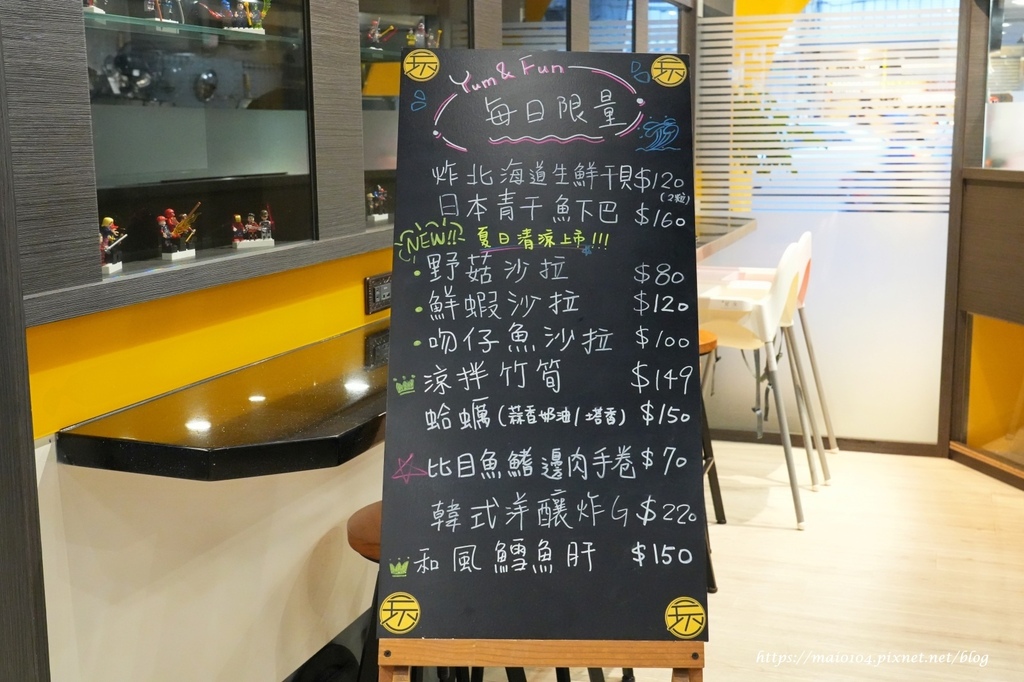 玩
玩
Yum & Fun
每日限量
炸北海道生鮮干貝$120
(2粒)
日本青干魚下巴 $160
NEW!! 夏日清涼上市!!!
·野菇沙拉 $80
·鮮蝦沙拉 $120
·吻仔魚沙拉 $100
涼拌竹筍 $149
蛤蠣(蒜香奶油/塔香) $150
比目魚鰭邊肉手卷 $70
韓式洋釀炸G $220
和風鱈魚肝 $150
玩
玩
https://maio104.pixnet.net/blog